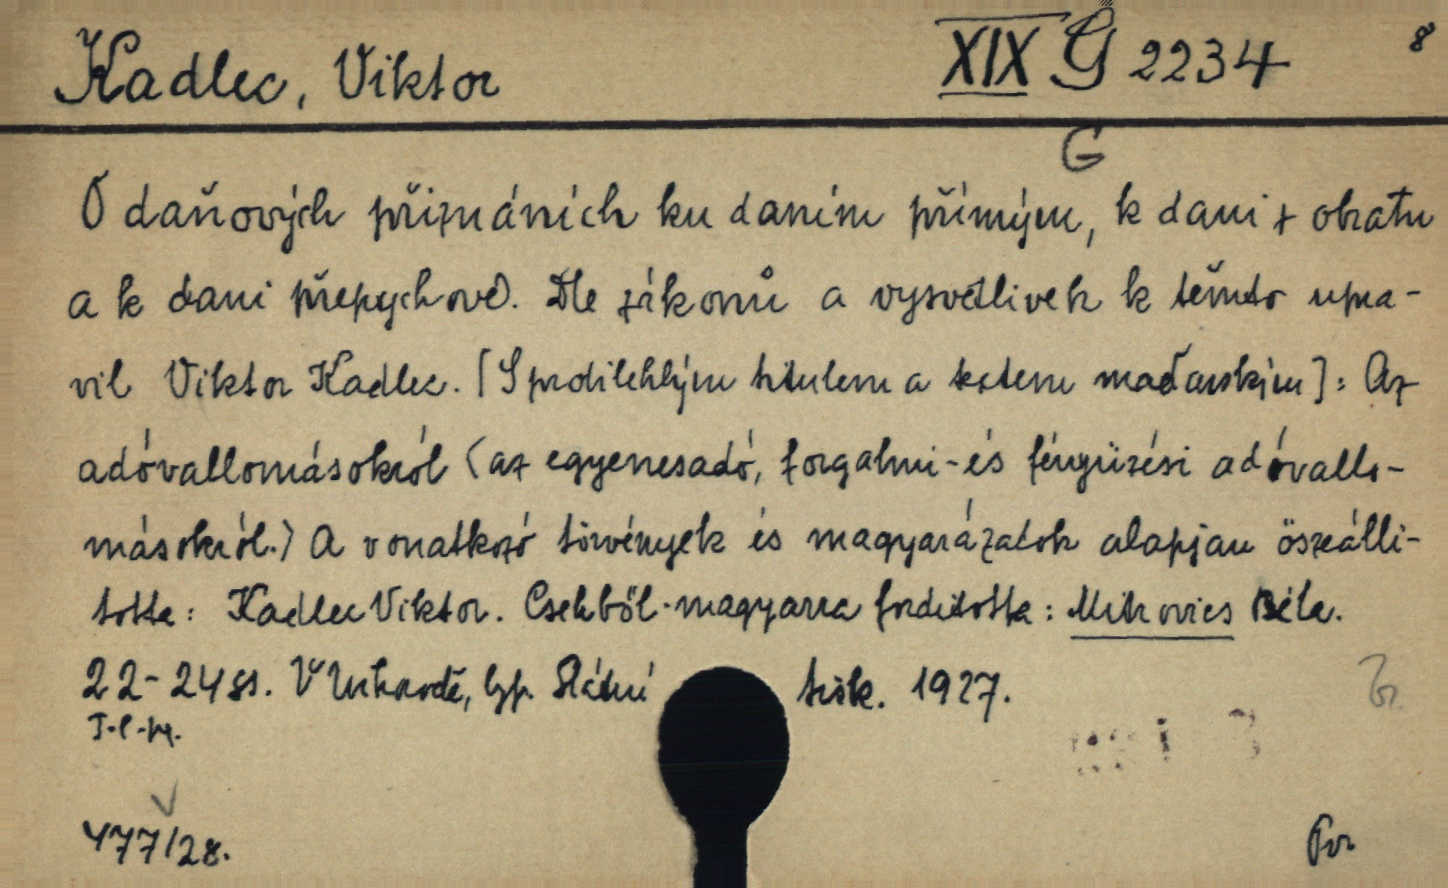 Kadlec, Viktor
XIX G 2234
8
G
O daňových přiznáních ku daním přímým, k dani z obratu
a k dani přepychové. Dle zákonů a vysvětlivek k těmto upra-
vil Viktor Kadlec. [S protilehlým titulem a textem maďarským]: Az
adóvallomásokról (az egyenesadó, forgalmi- és fényüzési adóvallo-
másokról.) A vonatkozó törvények és magyarázatok alapjan öszeálli-
totta: Kadlec Viktor. Csehből magyarra forditotta: Mitrovics Béla.
22-24 ss. V Užhorodě, typ. Státní tisk. 1927.
477/28.